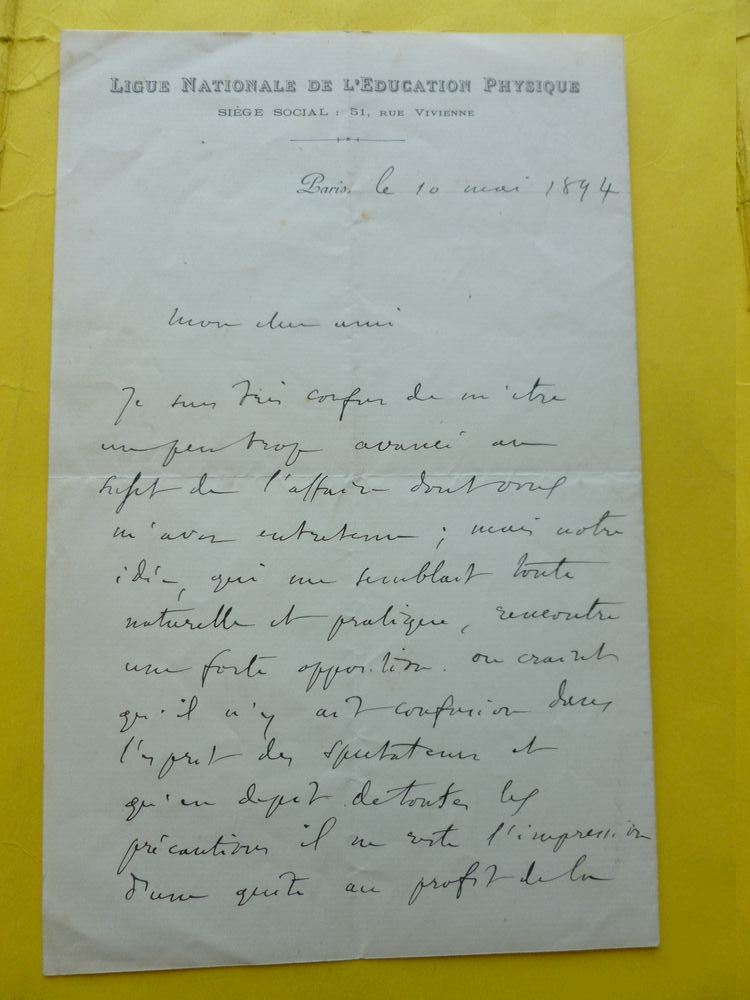 LIGUE NATIONALE DE L'EDUCATION PHYSIQUE
SIÈGE SOCIAL : 51, RUE VIVIENNE
Paris, le 10 mai 1894
Mon cher ami
Je suis très confus de m'être
un peu trop avancé au
sujet de l'affaire dont vous
m'avez entretenu ; mais notre
idée, qui me semblait toute
naturelle et pratique, rencontre
une forte opposition. on craint
qu'il n'y ait confusion dans
l'esprit des spectateurs et
qu'en dépit de toutes les
précautions il ne reste l'impression
d'une quête au profit de la